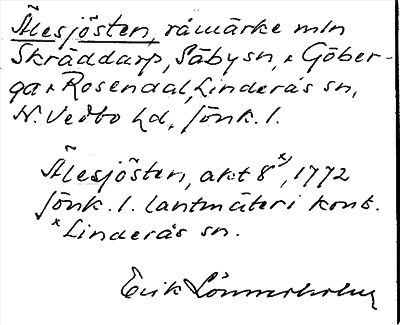 Älesjösten, råmärke mln
Skräddarp, Säby sn, o Göber-
ga o Rosendal, Linderås sn,
N. Vedbo hd, Jönk. l.
Älesjösten, akt 8 x), 1772
Jönk. l. lantmäteri kont.
x Linderås sn.
Erik Lönnerholm